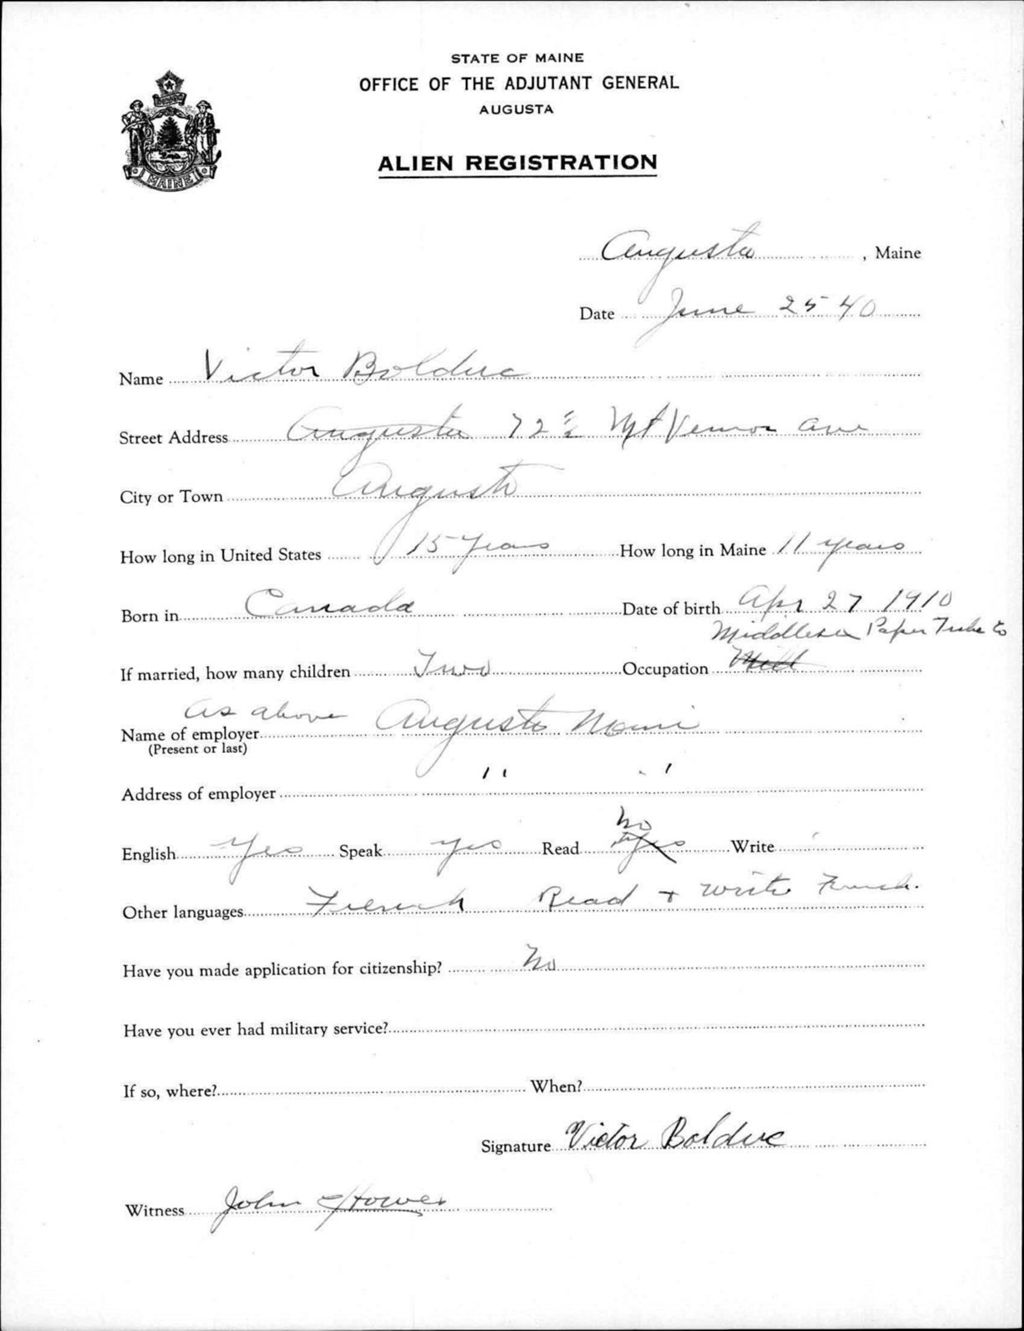 STATE OF MAINE
OFFICE OF THE ADJUTANT GENERAL
AUGUSTA
ALIEN REGISTRATION
MAINE
Augusta, Maine
Date June 25 40
Name Victor Bolduc
Street Address Augusta 72½ Mt Vernon Ave
City or Town Augusta
How long in United States 15 Years How long in Maine 11 years
Born in Canada Date of birth Apr 27 1910
Middlesex Paper Tube Co
If married, how many children Two Occupation Mill
as above Augusta Maine
Name of employer
(Present or last)
Address of employer " "
No
English Yes Speak yes Read Yes Write
Other languages French Read + write French.
Have you made application for citizenship? No
Have you ever had military service?
If so, where? When?
Signature Victor Bolduc
Witness John Howes